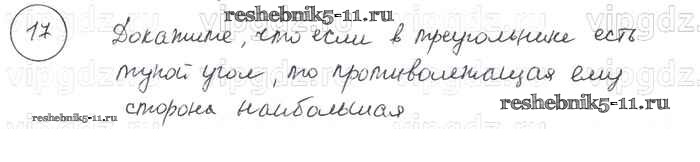 reshebnik5-11.ru
17 Докажите, что если в треугольнике есть
тупой угол, то противолежащая ему
сторона наибольшая
reshebnik5-11.ru
reshebnik5-11.ru